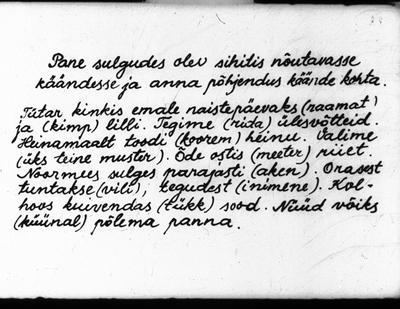 Pane sulgudes olev sihitis nõutavasse
käändesse ja anna põhjendus käände kohta.
Tütar kinkis emale naistepäevaks (raamat)
ja (kimp) lilli. Tegime (rida) ülesvõtteid.
Heinamaalt toodi (koorem) heinu. Valime
(üks teine muster). Õde ostis (meeter) riiet.
Noormees sulges parajasti (aken). Orasest
tuntakse (vili), tegudest (inimene). Kol-
hoos kuivendas (tükk) sood. Nüüd võiks
(küünal) põlema panna.